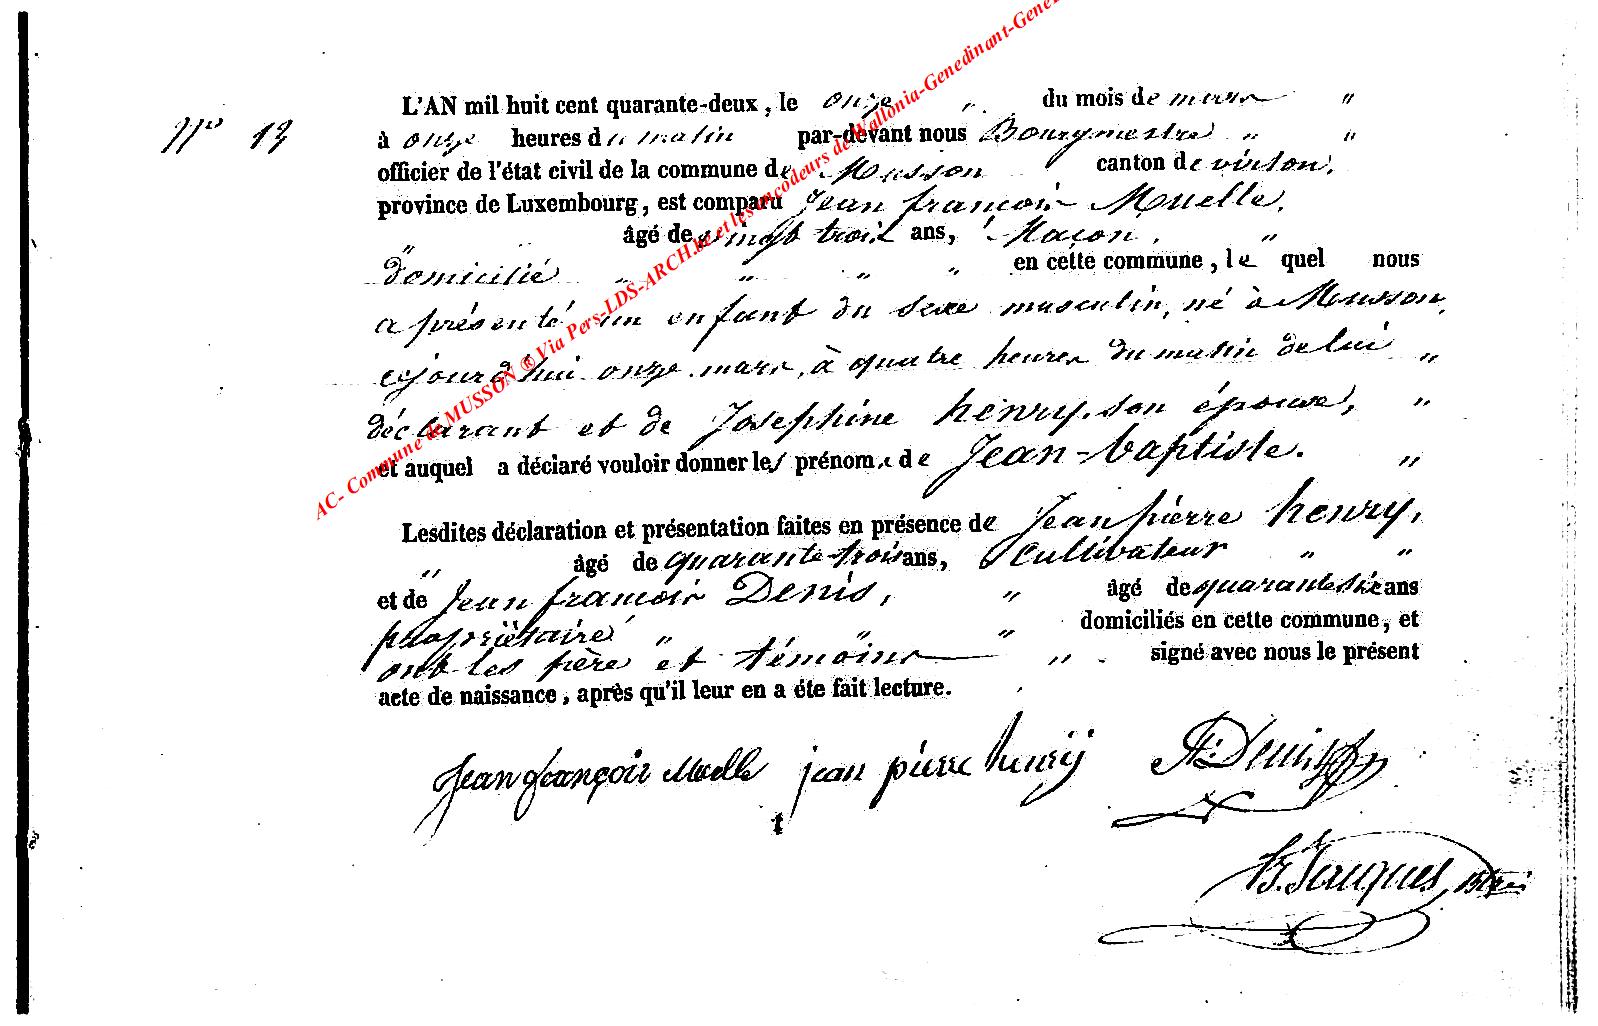 L'AN mil huit cent quarante-deux, le onze " du mois de mars "
N° 13
à onze heures du matin par-devant nous Bourgmestre " "
officier de l'état civil de la commune de Musson canton de virton,
province de Luxembourg, est comparu Jean françois Muelle,
" âgé de vingt trois ans, Maçon, "
domicilié " " " " en cette commune, le quel nous
a présenté un enfant du sexe masculin, né à Musson,
cejourd'hui onze mars, à quatre heures du matin de lui "
déclarant et de Josephine henry, son épouse, "
et auquel a déclaré vouloir donner les prénoms de Jean-baptiste. "
Lesdites déclaration et présentation faites en présence de Jean pierre henry,
" âgé de quarante-trois ans, Cultivateur " "
et de Jean françois Denis, " âgé de quarante six ans
propriétaire " " " domiciliés en cette commune, et
ont les père et témoins " signé avec nous le présent
acte de naissance, après qu'il leur en a éte fait lecture.
Jean françois Muelle jean pierre henry Denis
Jacques
AC- Commune de MUSSON ® Via Pers-LDS-ARCH.be et les encodeurs de Wallonia-Genedinant-Gene